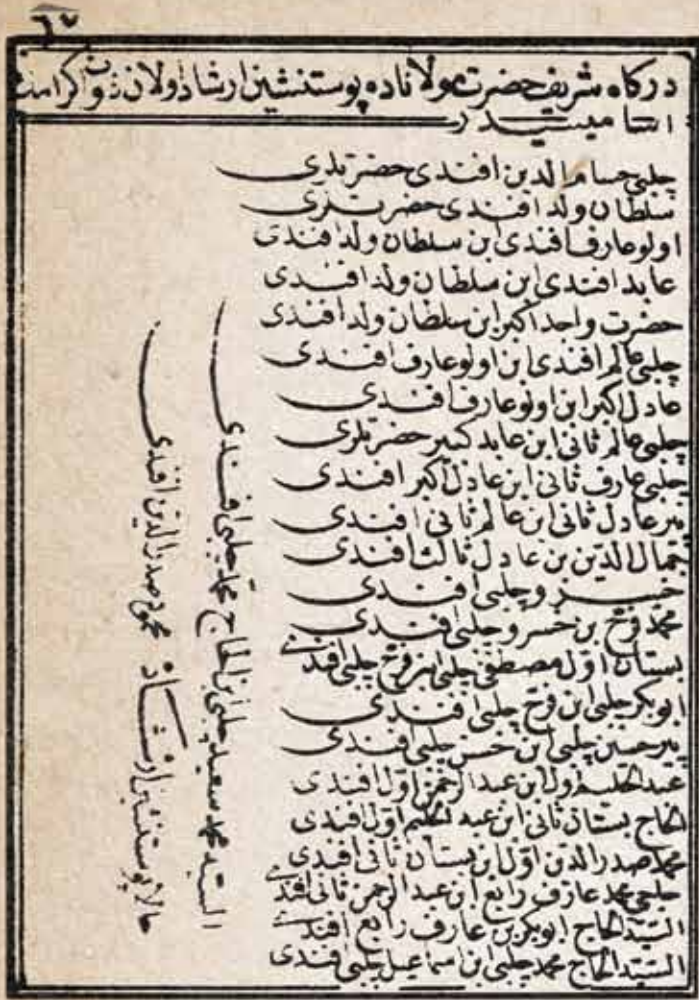 ٦٧
دركاه شريف حضرت مولاناده پوستنشين ارشاد اولان ذوات كرامك
اسا ميسيدر
چلبى حسام الدين افندى حضرتلرى
سلطان ولد افندى حضرتلرى
اولو عارف افندى ابن سلطان ولد افندى
عابد افندى ابن سلطان ولد افندى
حضرت واحد اكبر ابن سلطان ولد افندى
چلبى عالم افندى ابن اولو عارف افندى
عادل اكبر ابن اولو عارف افندى
چلبى عالم ثانى ابن عابد كبير حضرتلرى
چلبى عارف ثانى ابن عادل اكبر افندى
پير عادل ثانى ابن عالم ثانى افندى
جمال الدين بن عادل ثالث افندى
خسرو چلبى افندى
محمد فرخ بن خسرو چلبى افندى
بستان اول مصطفى چلبى ابن فرخ چلبى افندى
ابوبكر چلبى ابن فرخ چلبى افندى
پير حسين چلبى ابن خسرو چلبى افندى
عبد الحليم اول ابن عبد الرحمن اول افندى
الحاج بستان ثانى ابن عبد الحليم اول افندى
محمد صدرالدين اول ابن بستان ثانى افندى
چلبى محمد عارف رابع ابن عبد الرحمن ثانى افندى
السيد الحاج ابوبكر بن عارف رابع افندى
السيد الحاج محمد چلبى ابن اسماعيل چلبى افندى
السيد محمد سعيد چلبى ابن الحاج محمد چلبى افندى
حالا پوستنشين ارشاد محمود صدرالدين افندى